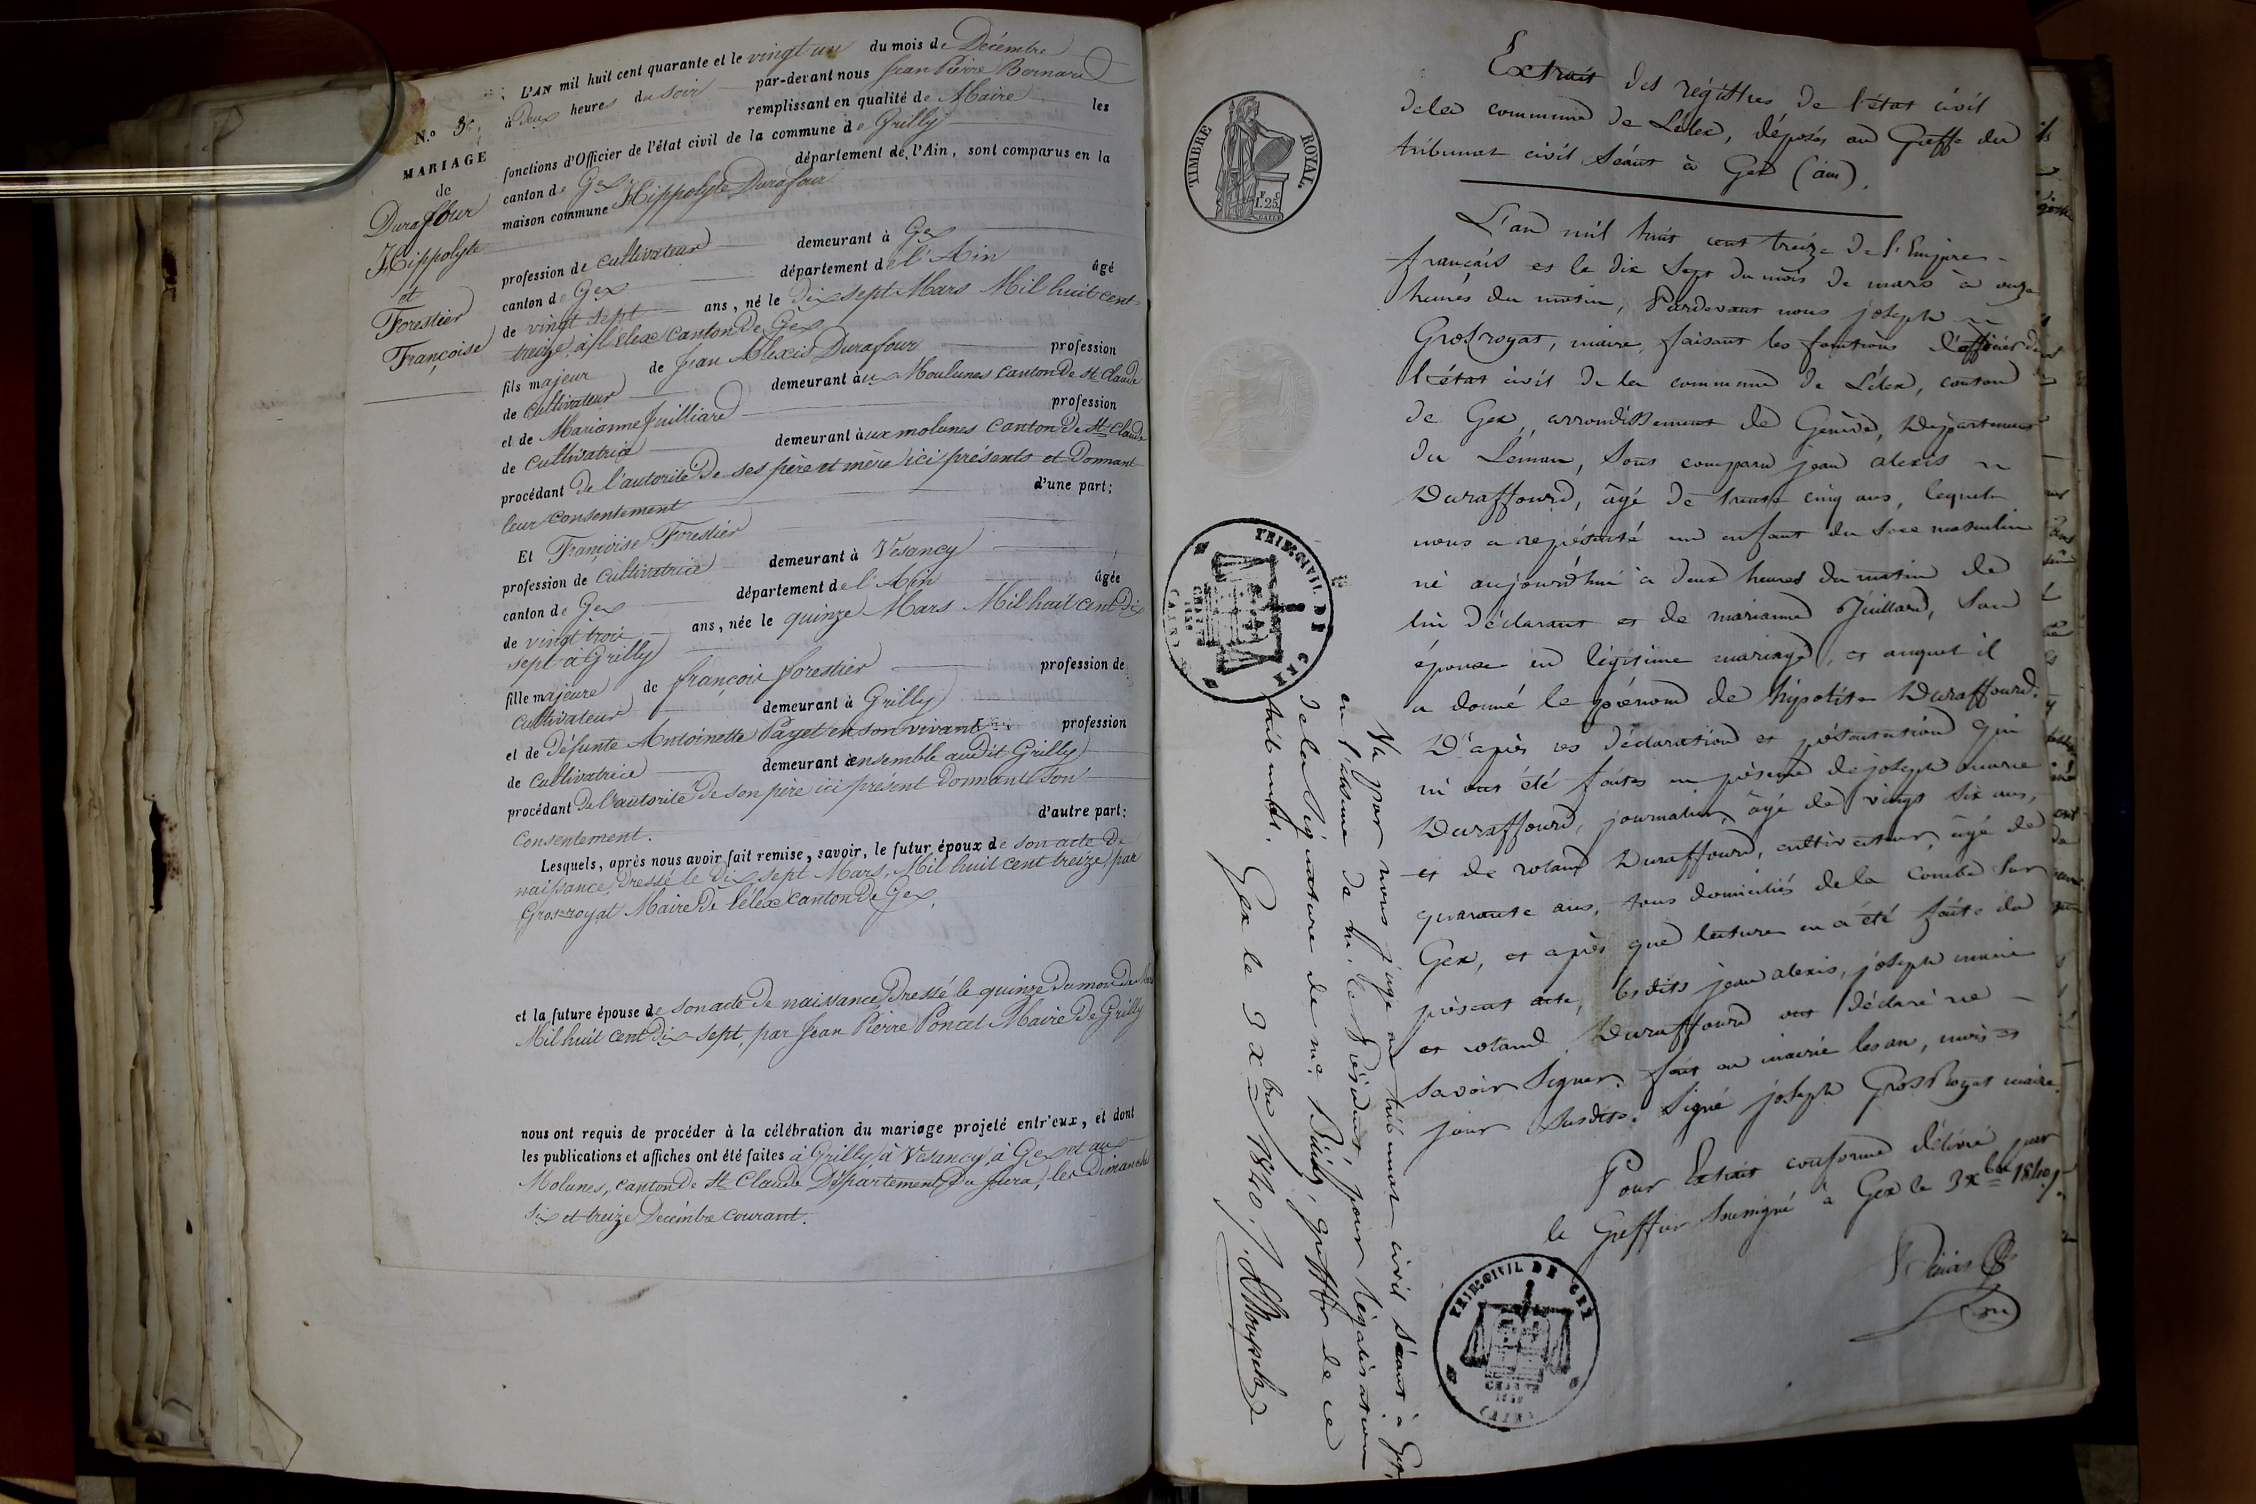 L'AN mil huit cent quarante et le vingt un du mois de Décembre
à deux heures du soir par-devant nous Jean Pierre Bernard
remplissant en qualité de Maire les
fonctions d'Officier de l'état civil de la commune de Grilly
canton de Gex département de l'Ain, sont comparus en la
maison commune Hippolyte Durafour
N.o
MARIAGE
de
Durafour
Hippolyte
et
Forestier
Françoise
profession de cultivateur demeurant à Gex
canton de Gex département de l'Ain âgé
de vingt sept ans, né le dix sept Mars Mil huit cent
treize, à Lélex canton de Gex
fils majeur de Jean Alexis Durafour profession
de cultivateur demeurant aux Moulunes canton de St Claude
et de Marianne Juilliard profession
de cultivatrice demeurant aux molunes canton de St Claude
procédant de l'autorité de ses père et mère ici présents et donnant
leur consentement d'une part;
Et Françoise Forestier
profession de cultivatrice demeurant à Vesancy
canton de Gex département de l'Ain âgée
de vingt trois ans, née le quinze Mars Mil huit cent dix
sept à Grilly
fille majeure de françois forestier profession de
cultivateur demeurant à Grilly
et de défunte Antoinette Payet en son vivant profession
de cultivatrice demeurant ensemble audit Grilly
procédant de l'autorité de son père ici présent donnant son
consentement. d'autre part;
Lesquels, après nous avoir fait remise, savoir, le futur époux de son acte de
naissance, dressé le dix sept Mars, Mil huit cent treize, par
Grosroyat Maire de Lélex canton de Gex.
et la future épouse de son acte de naissance dressé le quinze du mois de
Mil huit cent dix sept, par Jean Pierre Poncet Maire de Grilly
nous ont requis de procéder à la célébration du mariage projeté entr'eux, et dont
les publications et affiches ont été faites à Grilly, à Vesancy, à Gex et aux
Molunes, canton de St Claude Département du Jura, les dimanche
six et treize Décembre courant.
TIMBRE ROYAL
F. C.
1.25
TRIB. CIVIL DE GEX
Extrait des régistres de l'état civil
de la commune de Lélex, déposés au Greffe du
tribunal civil séant à Gex (ain).
L'an mil huit cent treize de l'Empire
français et le dix sept du mois de mars à onze
heures du matin, Pardevant nous joseph
Grosroyat, maire, faisant les fonctions d'officier de
l'état civil de la commune de Lélex, canton
de Gex, arrondissement de Genève, Département
du Léman, sont comparu jean alexis
Duraffourd, âgé de trente cinq ans, lequel
nous a représenté un enfant du sexe masculin
né aujourd'hui à deux heures du matin de
lui déclarant et de marianne Juillard, son
épouse en légitime mariage, et auquel il
a donné le prénom de hipolite Duraffourd.
D'après les déclaration et présentation qui
m'ont été faites en présence de joseph marie
Duraffourd, journalier, âgé de vingt six ans,
et de roland Duraffourd, cultivateur, âgé de
quarante ans, tous domiciliés de la Combe sur
Gex, et après que lecture en a été faite du
présent acte, lesdits jean alexis, joseph marie
et roland Duraffourd ont déclaré ne
savoir signer. fait en mairie les an, mois et
jour susdits. Signé joseph GrosRoyat maire.
Pour Extrait conforme délivré par
le Greffier soussigné à Gex le 3 xbre 1840.
TRIB. CIVIL DE GEX
CHARTE
1830
(AIN)
Vu par nous juge au tribunal civil séant à Gex,
en l'absence de Mr. le Président, pour légalisation
de la signature de me greffier de ce
tribunal. Gex le 3 xbre 1840.